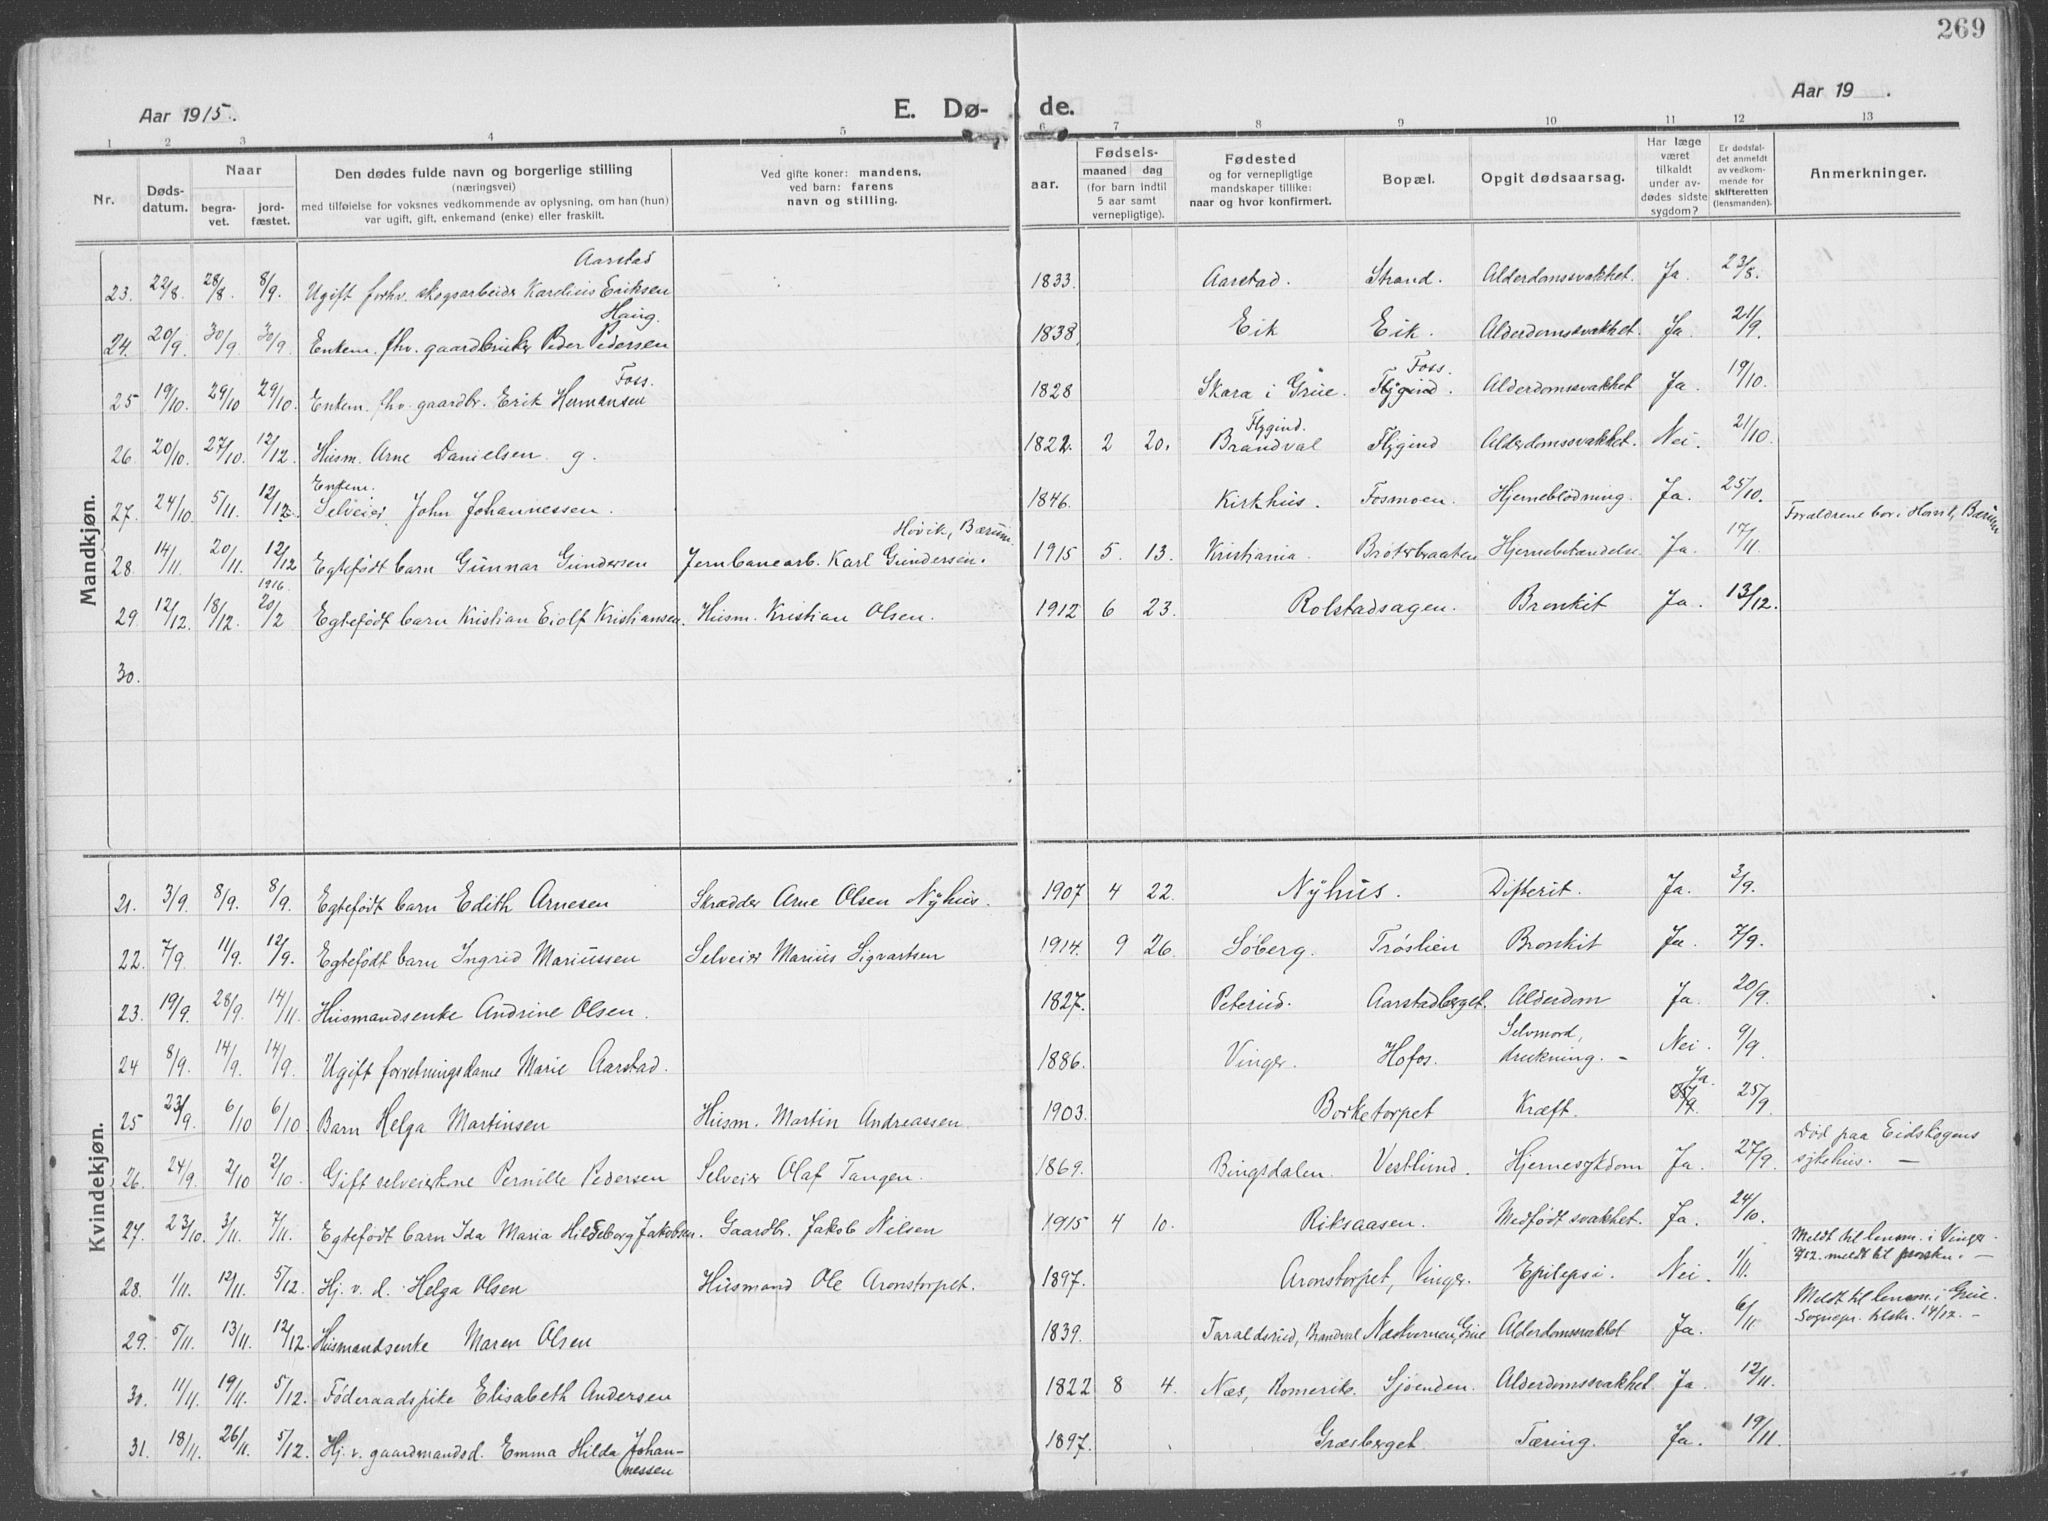 269
Aar 1915. E. Dø- de. Aar 19 .
1 2 3 4 5 6 7 8 9 10 11 12 13
Nr. Døds-datum. Naar begra-vet. jord-fæstet. Den dødes fulde navn og borgerlige stilling (næringsvei) med tilføielse for voksnes vedkommende av oplysning, om han (hun) var ugift, gift, enkemand (enke) eller fraskilt. Ved gifte koner: mandens, ved barn: farens navn og stilling. Fødsels- aar. maaned dag (for barn indtil 5 aar samt vernepligtige). Fødested og for vernepligtige mandskaper tillike: naar og hvor konfirmert. Bopæl. Opgit dødsaarsag. Har læge været tilkaldt under av-dødes sidste sygdom? Er dødsfal-det anmeldt av vedkom-mende for skifteretten (lensmanden). Anmerkninger.
Mandkjøn.
23. 22/8. 28/8. 8/9. Ugift forhv. skogsarbeider Karolius Eriksen Aarstad 1833. Aarstad. Strand. Alderdomssvakhet. Ja. 23/8.
24. 20/9 30/9 30/9 Enkem. fhv. gaardbruker Peder Pedersen Haug. 1838. Eik Eik. Alderdomssvakhet. Ja. 21/9.
25 19/10 29/10 29/10. Enkem. fhv. gaardbr. Erik Hermansen Foss. 1828 Skara i Grue. Flygind. Foss. Alderdomssvakhet Ja. 19/10.
26 20/10 27/10. 12/12. Husm. Arne Danielsen g. 1822. 2 20. Flygind. Brandval Flygind Alderdomssvakhet. Nei. 21/10.
27. 24/10 5/11. 12/12. Enkem. Selveier John Johannessen. 1846. Kirkhus. Fosmoen. Hjerneblødning. Ja. 25/10.
28. 14/11. 20/11. 12/12 Egtefødt barn Gunnar Gundersen Jernbanearb. Karl Gundersen. Høvik, Bærum. 1915 5. 13. Kristiania. Brøterbraaten Hjernebetændelse Ja. 17/11. Forældrene bor i Bærum
29 12/12. 18/12. 1916. 20/2 Egtefødt barn Kristian Eiolf Kristiansen. Husm. Kristian Olsen. 1912 6 23. Rolstadsagen. Bronkit Ja. 13/12.
30.
Kvindekjøn.
21. 3/9. 8/9. 8/9. Egtefødt barn Edith Arnesen Skrædder Arne Olsen Nyhus. 1907 4 22. Nyhus. Difterit. Ja. 3/9.
22. 7/9. 11/9. 12/9. Egtefødt barn Ingrid Mariussen Selveier Marius Sigvartsen 1914. 9 26. Søberg. Trøslien Bronkit Ja. 7/9.
23. 19/9. 28/9. 14/11. Husmandsenke Andrine Olsen. 1827. Peterud. Aarstadberget. Alderdom Ja. 20/9.
24 8/9. 14/9. 14/9. Ugift forretningsdame Marie Aarstad. 1886. Vinger. Hofos. Selvmord, drukning. – Nei. 9/9.
25 23/9. 6/10 6/10. Barn Helga Martinsen Husm. Martin Andreassen. 1903. Borketorpet Kræft. Ja. 25/9.
26. 24/9. 2/10 2/10. Gift selveierkone Pernille Pedersen Selveier Olaf Tangen. 1869. Bingsdalen. Vestlund. Hjernesykdom Ja. 27/9. Død paa Eidskogens sykehus. –
27. 23/10. 3/11. 7/11. Egtefødt barn Ida Maria Hildeborg Jakobsen. Gaardbr. Jakob Nilsen 1915 4 10. Riksaasen. Medfødt svakhet. Ja. 24/10.
28. 1/11. 12/11. 5/12. Hj. v. d. Helga Olsen Husmand Ole Aronstorpet. 1897. Aronstorpet, Vinger. Epilepsi. Nei. 1/11. Meldt til lensm. i Vinger. meldt til –
29. 5/11. 13/11. 12/12. Husmandsenke Maren Olsen 1839. Taraldsrud, Brandval Næstvernen, Grue Alderdomssvakhet Ja. 6/11. Meldt til lensm. i Grue. Sognepr. tilskr. 14/12. –
30. 11/11. 19/11. 5/12. Føderaadspike Elisabeth Andersen 1822 8 4. Næs, Romerike. Sjøenden. Alderdomssvakhet. Ja. 12/11.
31. 18/11. 26/11. 5/12. Hj. v. gaardmandsd. Emma Hilda Johan-nessen 1897. Græsberget. Tæring. Ja. 19/11.